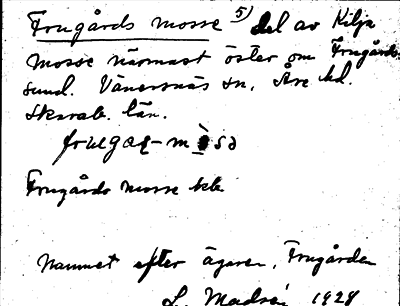 Frugårds mosse 5) del av Kilja
mosse närmast öster om Frugårds-
sund. Vänersnäs sn, Åse hd.
Skarab. län.
Frugårds mosse
Namnet efter ägaren, Frugården
L. 1928